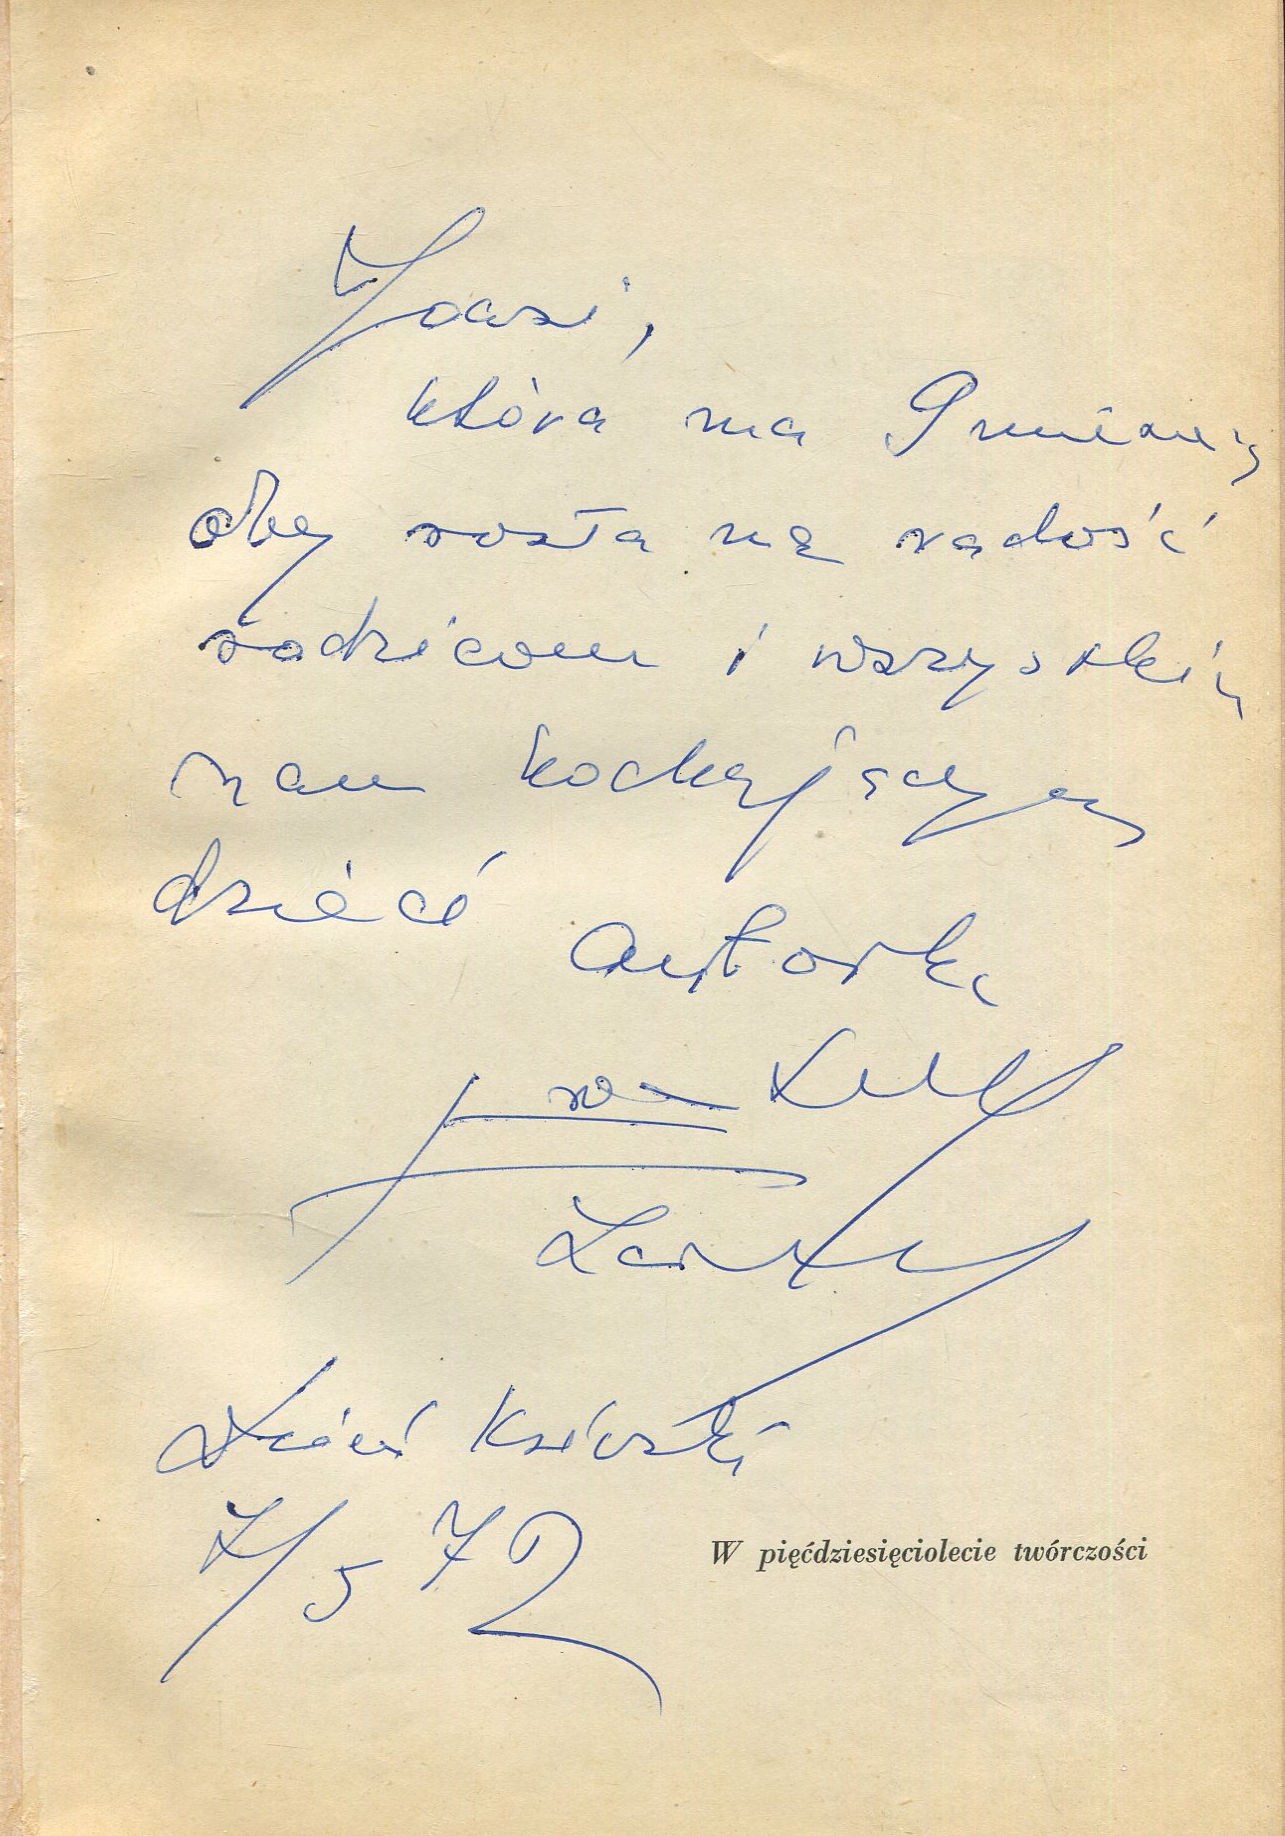 Joasi,
która ma 9 miesięcy
oby rosła na radość
rodzicom i wszystkim
nam kochającym
dzieci autorka
Ewa
Dzień Książki
7/5 72
W pięćdziesięciolecie twórczości